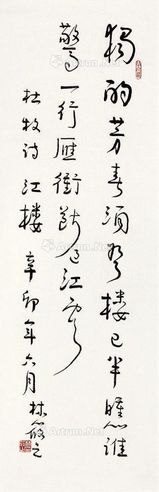 獨酌芳春酒登楼已半醺誰
驚一行雁衝斷過江雲
杜牧诗江楼 辛卯年六月 林筱之
Artron.Net